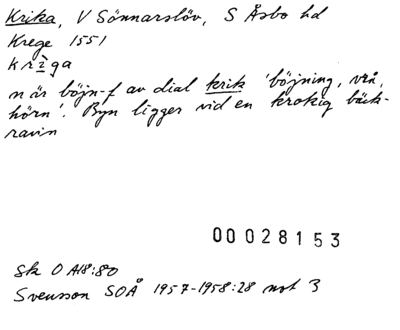 Krika, V Sönnarslöv, S Åsbo hd
Krege 1551
krìga
n är böjn-f av dial krik 'böjning, vrå,
hörn'. Byn ligger vid en krokig bäck-
ravin
00028153
Sk O A18:80
Svensson SOÅ 1957-1958:28 not 3